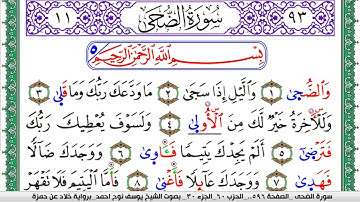 ١١ سُورَةُ الضُّحَىٰ ٩٣
بِسْمِ اللَّهِ الرَّحْمَٰنِ الرَّحِيمِ
وَالضُّحَىٰ ١ وَالَّيْلِ إِذَا سَجَىٰ ٢ مَا وَدَّعَكَ رَبُّكَ وَمَا قَلَىٰ ٣
وَلَلْأَخِرَةُ خَيْرٌ لَّكَ مِنَ الْأُولَىٰ ٤ وَلَسَوْفَ يُعْطِيكَ رَبُّكَ
فَتَرْضَىٰ ٥ أَلَمْ يَجِدْكَ يَتِيمًا فَـَٔاوَىٰ ٦ وَوَجَدَكَ ضَالًّا
فَهَدَىٰ ٧ وَوَجَدَكَ عَائِلًا فَأَغْنَىٰ ٨ فَأَمَّا الْيَتِيمَ فَلَا تَقْهَرْ
سورة الضحى _الصفحة ٥٩٦_ الحزب ٦٠_الجزء ٣٠_ بصوت الشيخ يوسف نوح احمد_برواية خلاد عن حمزة